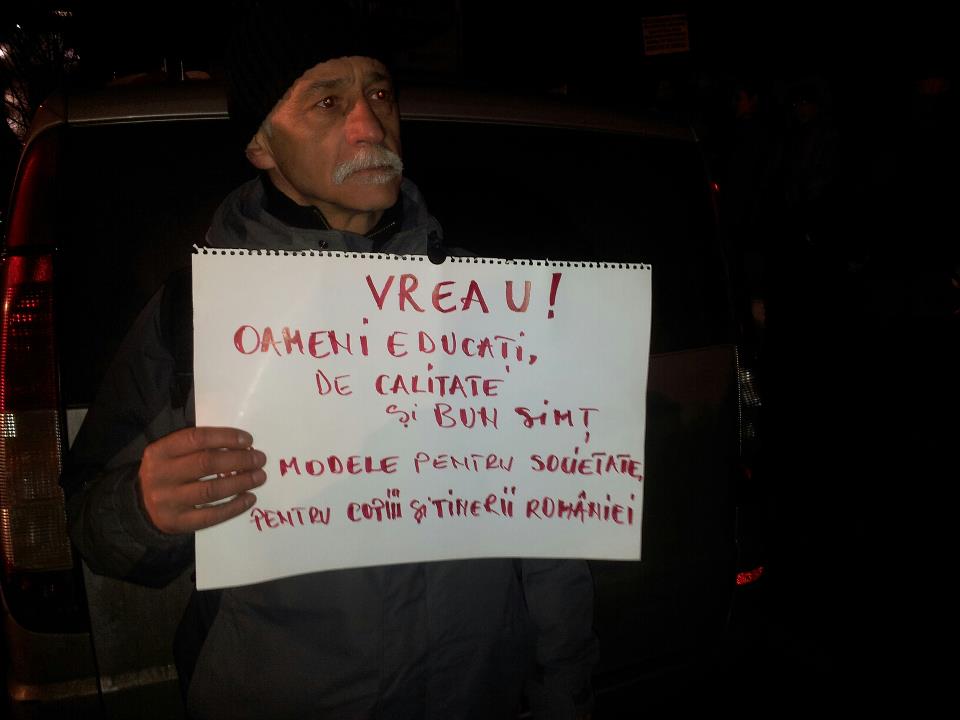 VREAU!
OAMENI EDUCAȚI,
DE CALITATE
ȘI BUN SIMȚ
MODELE PENTRU SOCIETATE,
PENTRU COPIII ȘI TINERII ROMÂNIEI